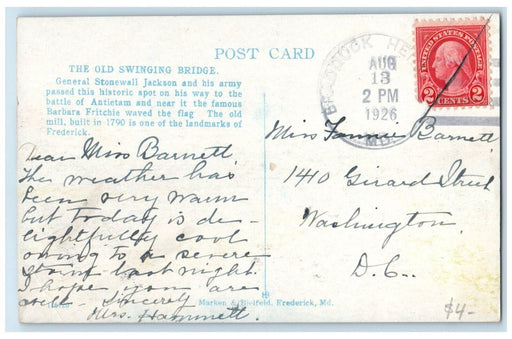 POST CARD
THE OLD SWINGING BRIDGE.
General Stonewall Jackson and his army
passed this historic spot on his way to the
battle of Antietam and near it the famous
Barbara Fritchie waved the flag The old
mill, built in 1790 is one of the landmarks of
Frederick.
Dear Miss Barnett,
The weather has
been very warm
but today is de-
lightfully cool
owing to a severe
storm last night.
I hope you are
well - Sincerely
Mrs. Hammett.
Marken & Bielfeld, Frederick, Md.
BRADDOCK HE
AUG
13
2 PM
1926
MD.
UNITED STATES POSTAGE
2 CENTS 2
Miss Fannie Barnett
1410 Girard Street
Washington,
D.C.
$4-